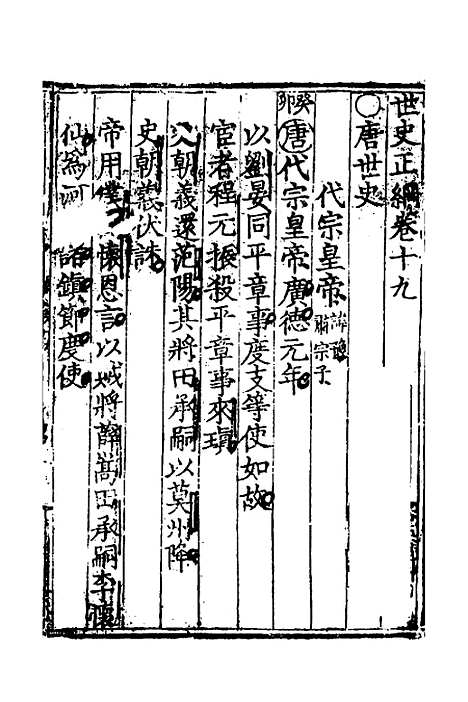 世史正綱卷十九
○唐世史
代宗皇帝諱豫肅宗子
癸卯唐代宗皇帝廣德元年
以劉晏同平章事度支等使如故
宦者程元振殺平章事來瑱
史朝義還范陽其將田承嗣以莫州降
史朝義伏誅
帝用僕 懷恩言以城將薛嵩田承嗣李懷
仙為河 諸鎮節度使